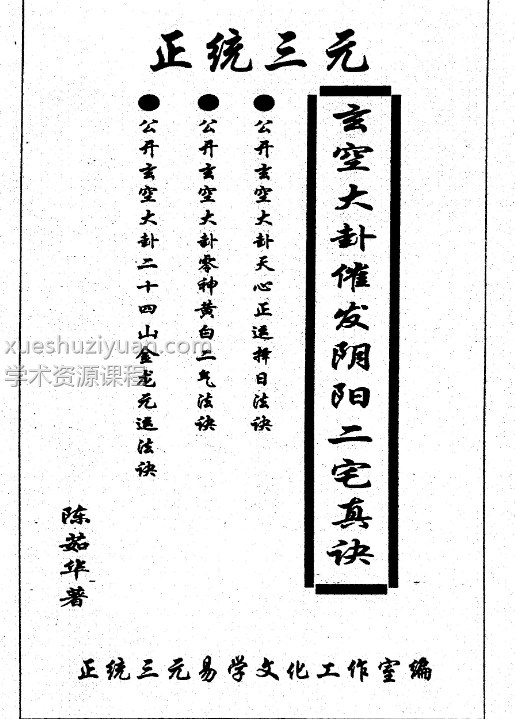 正统三元
玄空大卦催发阴阳二宅真诀
●公开玄空大卦天心正运择日法诀
●公开玄空大卦零神黄白二气法诀
●公开玄空大卦二十四山金龙元运法诀
陈茹华著
正统三元易学文化工作室编
xueshuziyuan.com
学术资源课程